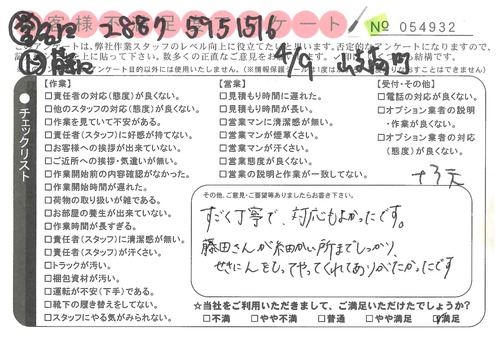 お客様不満足度アンケート
№ 054932
2887 5951516
4/9
このアンケートは、弊社作業スタッフのレベル向上に役立てたいと思います。否定的なアンケートになりますので、
チェックリスト
【作業】
□責任者の対応(態度)が良くない。
□他のスタッフの対応(態度)が良くない。
□作業を見ていて不安がある。
□責任者(スタッフ)に好感が持てない。
□お客様への挨拶が出来ていない。
□ご近所への挨拶・気遣いが無い。
□作業開始前の内容確認がなかった。
□作業開始時間が遅れた。
□荷物の取り扱いが雑である。
□お部屋の養生が出来ていない。
□作業時間が長すぎる。
□責任者(スタッフ)に清潔感が無い。
□責任者(スタッフ)が汗くさい。
□トラックが汚い。
□梱包資材が汚い。
□運転が不安(下手)である。
□靴下の履き替えをしてない。
□スタッフにやる気がみられない。
【営業】
□見積もり時間に遅れた。
□見積もり時間が長い。
□営業マンに清潔感が無い。
□営業マンが煙草くさい。
□営業マンが汗くさい。
□営業態度が良くない。
□営業の説明と作業が一致してない。
【受付・その他】
□電話の対応が良くない。
□オプション業者の説明
・作業が良くない。
□オプション業者の対応
(態度)が良くない。
その他、ご意見・ご要望等ありましたらお書き下さい。
すごく丁寧で、対応もよかったです。
藤田さんが細かい所までしっかり、
せきにんをもってやってくれてありがたかったです
☆当社をご利用いただきまして、ご満足いただけたでしょうか?
□不満 □やや不満 □普通 □やや満足 ☑満足